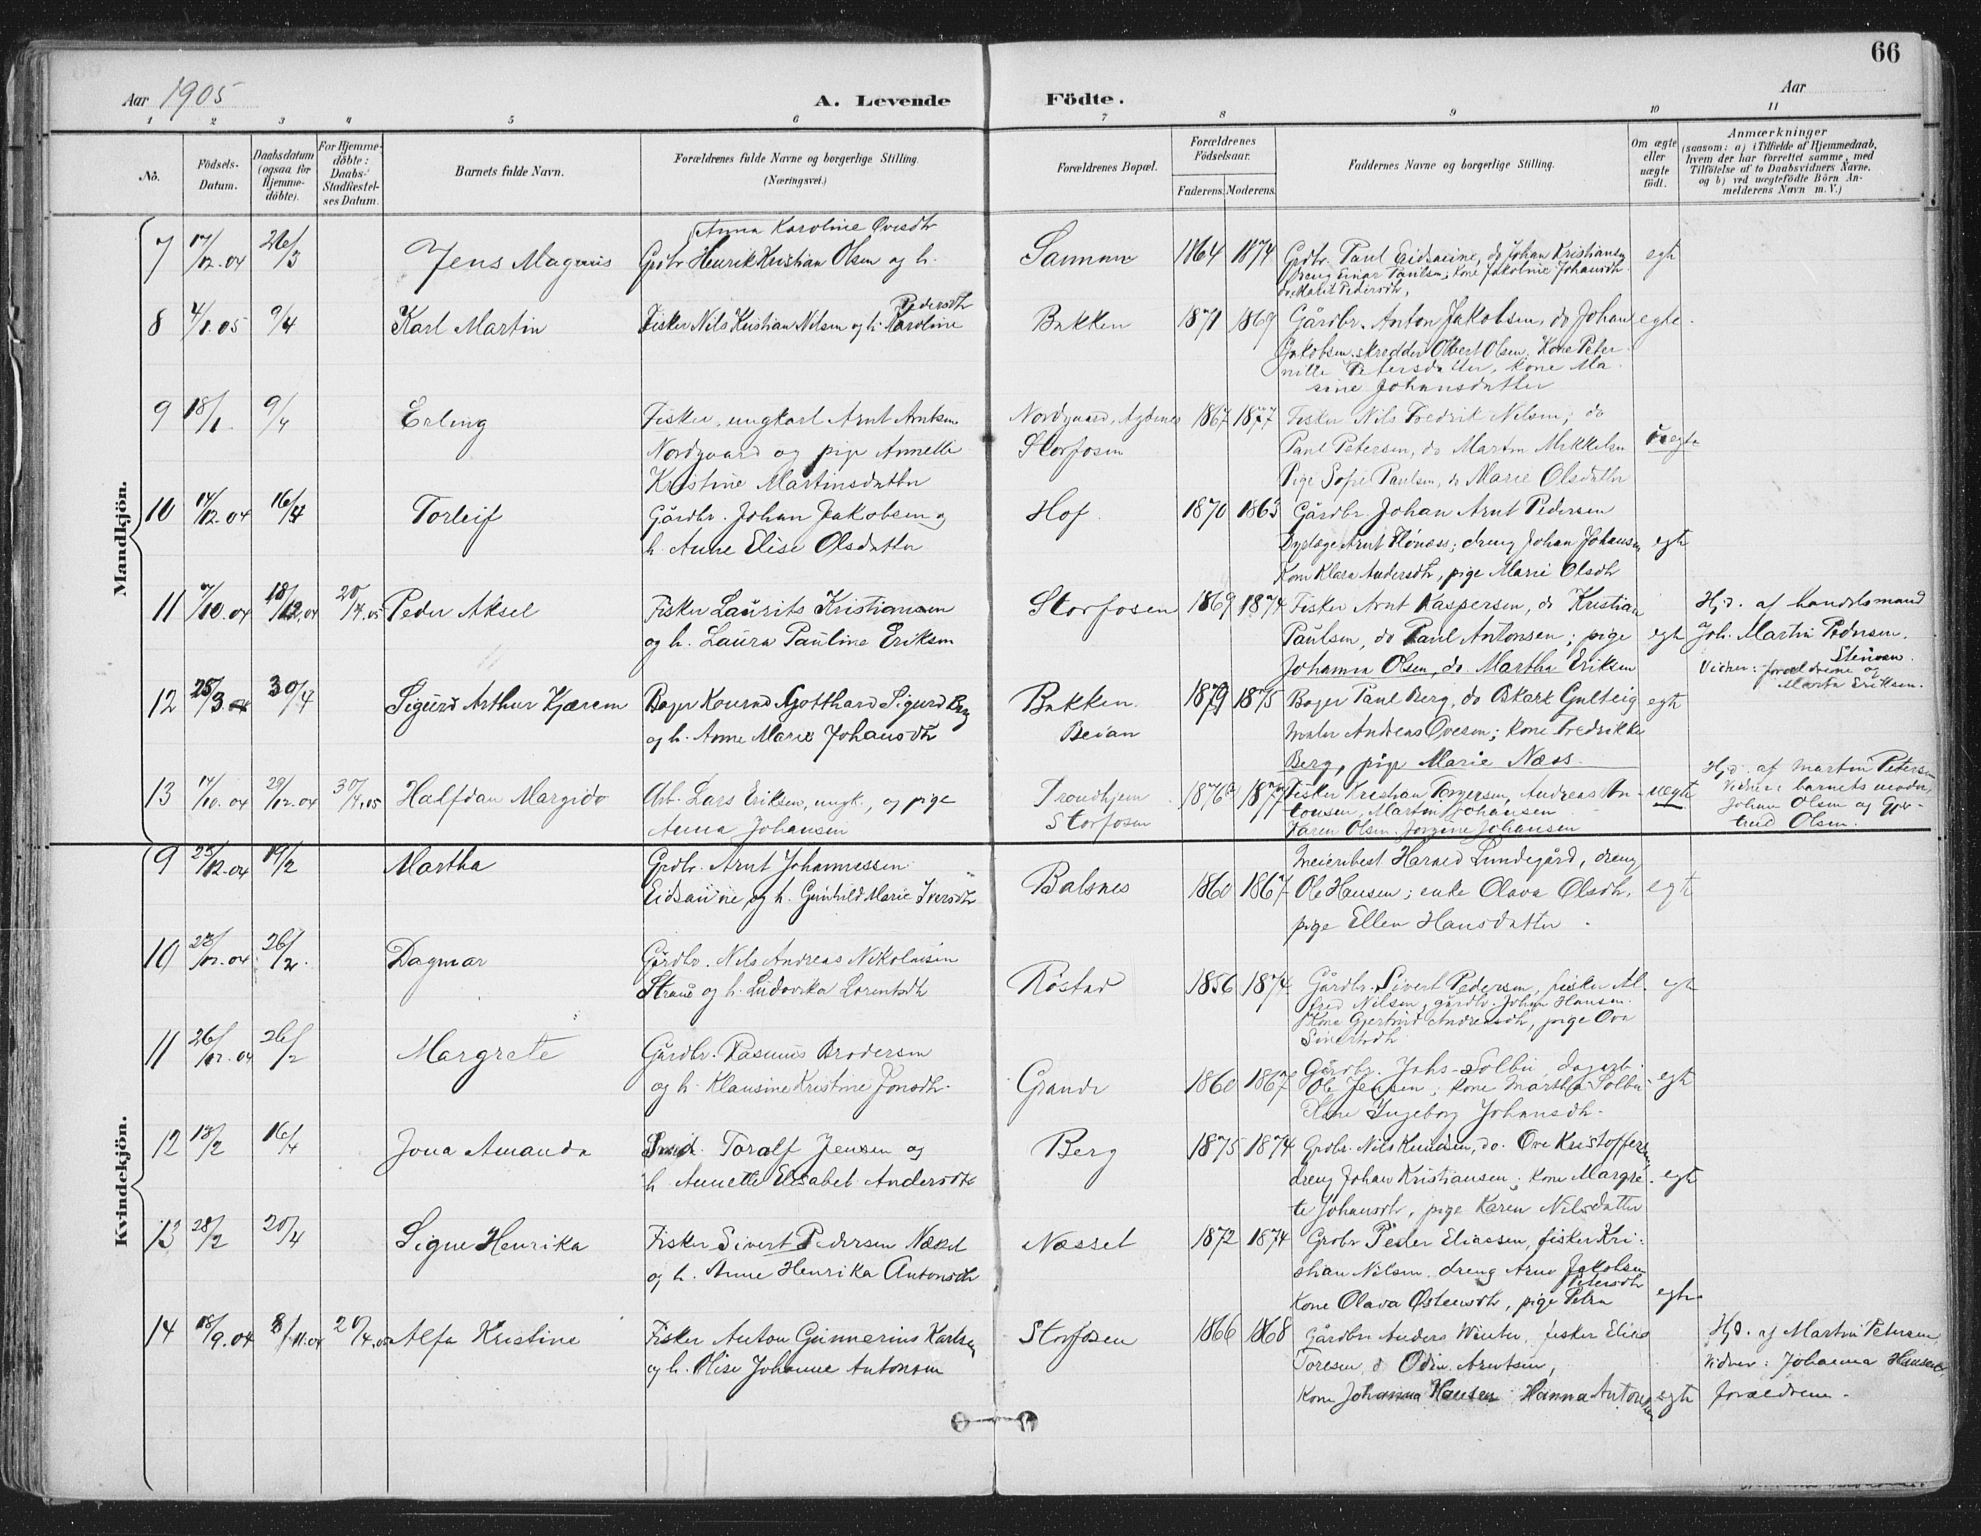 66
Aar 1905
A. Levende Födte.
Aar
1 2 3 4 5 6 7 8 9 10 11
No.
Födsels-Datum.
Daabsdatum (ogsaa for Hjemme-döbte).
For Hjemme-döbte: Daabs-Stadfæstelses Datum.
Barnets fulde Navn.
Forældrenes fulde Navne og borgerlige Stilling. (Næringsvei.)
Forældrenes Bopæl.
Forældrenes Födselsaar.
Faderens. Moderens.
Faddernes Navne og borgerlige Stilling.
Om ægte eller uægte födt.
Anmærkninger
(saasom: a) i Tilfælde af Hjemmedaab,
hvem der har forrettet samme, med
Tilföielse af to Daabsvidners Navne,
og b) ved uægtefödte Börn An-
melderens Navn m. V.)
Mandkjön.
Anna Karoline Ovesdtr
7 17/12.04 26/3 Jens Magnus Grdbr Henrik Kristian Olsen og h. 1864 1874 Grdbr. Paul Eidsaune, do Johan Kristiansen egte
dreng Einar Paulsen; kone Jakobine Johansdtr.
do Marit Pedersdtr,
Pedersdtr
8 4/1.05 9/4 Karl Martin Fisker Nils Kristian Nilsen og h. Karoline Bakken 1871 1869 Gårdbr. Anton Jakobsen, do Johan egte.
Jakobsen, skredder Olbert Olsen; Kone Peter
nille Petersdatter, kone Ma
sine Johansdatter
9 18/1. 9/4 Erling Fisker, ungkarl Arnt Arntsen Nordgaard, Agdenes 1867 1877 Fisker Nils Fredrik Nilsen; do
Nordgaard og pige Annette Storfosen Paul Petersen, do Martin Mikkelsen uegte
Kristine Martinsdatter Pige Sofie Paulsen, do Marie Olsdatter
10 14/12.04 16/4 Torleif Gårdbr. Johan Jakobsen og Hof. 1870 1863 Gårdbr. Johan Arnt Pedersen
h. Anne Elise Olsdatter Arnt Hönæss; dreng Johan Johansen egte
Kone Klara Andersdtr, pige Marie Olsdtr
11 7/10.04 18/12.04 20/4.05 Peder Aksel Fisker Laurits Kristiansen Storfosen 1869 1874 Fisker Arnt Kaspersen, do Kristian Hjd. af handelsmand
og h. Laura Pauline Eriksen Paulsen, do Paul Antonsen; pige egte Joh. Martin Pedersen.
Johanna Olsen, do Martha Eriksen Vidner: forældrene og
Marta Eriksen.
12 25/3 30/4 Sigurd Arthur Kjærem Bager Konrad Gotthard Sigurd Berg Bakken. 1879 1875 Bager Paul Berg, do Oskar Gulteig egte
og h. Anne Marie Johansdtr Beian maler Andreas Ovesen; kone Fredrikke
Berg, pige Marie Næss.
13 17/10.04 29/12.04 30/4.05 Halfdan Margido Arb. Lars Eriksen, ungk., og pige Trondhjem 1876 1877 Fisker Kristian Torgersen, Andreas An- uegte Hjd. af Martin Petersen
Anna Johansen Storfosen tonsen, Martin Johansen Vidner: barnets moder,
Karen Olsen. Jorgine Johansen Johan Olsen og Ger-
trud Olsen.
Kvindekjön.
9 23/12.04 19/2 Martha Grdbr. Arnt Johannessen Balsnes 1860 1867 Meieribest Harald Lundegård, dreng
Eidsaune og h. Gunhild Marie Iversdtr Ole Hansen; enke Olava Olsdtr. egte
pige Ellen Hansdatter.
10 23/12.04 26/2. Dagmar Gårdbr. Nils Andreas Nikolaisen Röstad 1856 1874 Gårdbr. Sivert Pedersen, fisker Al- egte
og h. Ludovika Lorentsdtr fred Nilsen, gårdbr. Johan Hansen.
Kone Gjertrud Andreasdtr, pige Ove
Sivertsdtr
11 26/12.04 26/2 Margrete Gårdbr. Rasmus Brodersen Grande 1860 1867 Gårdbr. Johs. Solbu, dagarb. egte
og h. Klausine Kristine Jonsdtr. Ole Jensen, kone Martha Solbu
Ingeborg Johansdtr.
12 13/2 16/4 Jona Amanda Smed. Toralf Jensen og Berg 1875 1874 Grdbr. Nils Knudsen, do. Ove Kristoffersen,
h. Anette Elisabet Andersdtr dreng Johan Kristiansen; kone Margre- egte
te Johansdtr, pige Karen Nilsdatter
13 28/2 20/4 Signe Henrika Fisker Sivert Pedersen Næsset 1872 1874 Grdbr Peder Eliassen, fisker Kri-
og h. Anne Henrika Antonsdtr stian Nilsen, dreng Arne Jakobsen
Petersdtr
Kone Olava Östensdtr, pige Petra egte
14 18/9.04 8/11.04 20/4.05 Alfa Kristine Fisker Anton Gunnerius Karlsen Storfosen 1866 1868 Gårdbr Anders Winter, fisker Elias Hjd. af Martin Petersen
og h. Olise Johanne Antonsen Toresen, do Odin Arntsen, Vidner: Johanna Hansen,
Kone Johanna Hansen Hanna Antonsen egte forældrene.